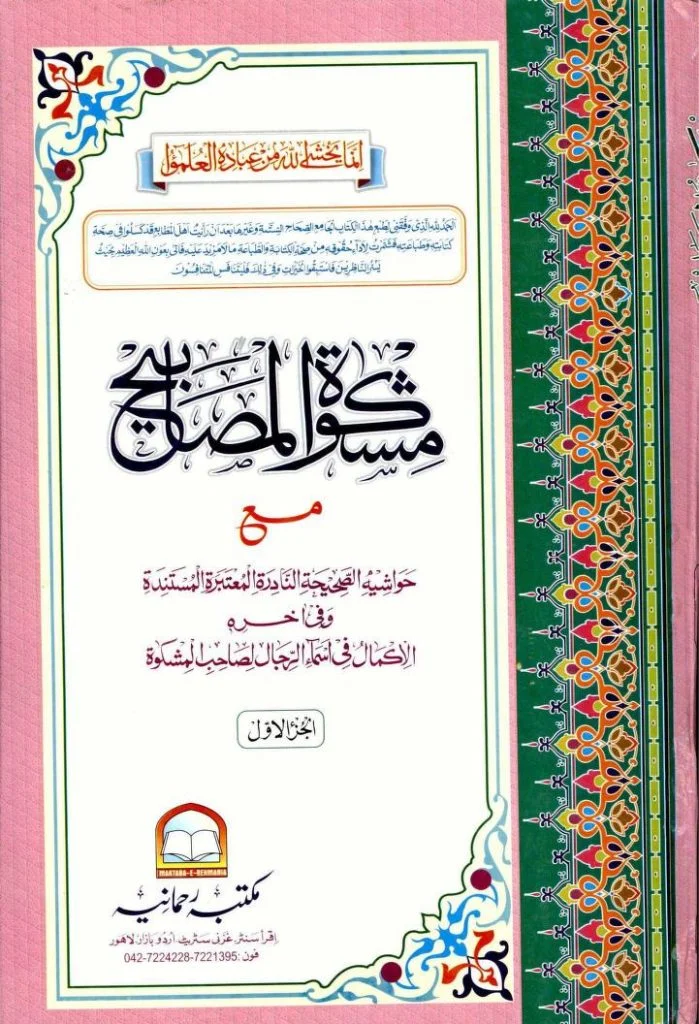 انما يخشى الله من عباده العلمؤا
الحمد لله الذی وفقنی لطبع هذا الكتاب الجامع الصحاح الستة وغيرها بعد ان رأيت اهل المطابع قد كسلوا فی صحة
كتابته وطباعته فشمرت لاداء حقوقه من صحة الكتابة والطباعة ما لا مزيد عليه فاتی بعون الله العظيم بحيث
يسر الناظرين فاستبقوا الخيرات وفی ذلك فليتنافس المتنافسون
مشكوة المصابيح
مع
حواشيه الصحيحة النادرة المعتبرة المستندة
وفی اخره
الاكمال فی اسماء الرجال لصاحب المشكوة
الجزء الاول
MAKTABA-E-REHMANIA
مکتبہ رحمانیہ
اقرأ سنٹر غزنی سٹریٹ اردو بازار لاہور
فون: 042-7224228-7221395